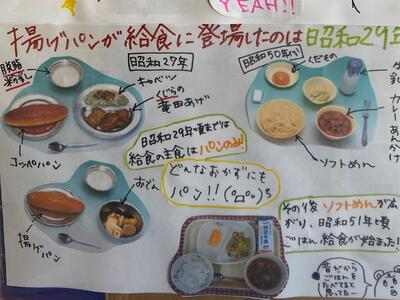 YEAH!!
揚げパンが給食に登場したのは昭和29年
脱脂
粉乳
昭和27年
キャベツ
くじらの
竜田あげ
コッペパン
昭和50年代
くだもの
牛乳
カレーあんかけ
ソフトめん
昭和29年頃までは
給食の主食はパンのみ!!
どんなおかずにも
パン!!
おでん
揚げパン
その後ソフトめんが広
がり、昭和51年頃
ごはん給食が始まった!
昔だから
ごはんを
たべてると
思ってたー